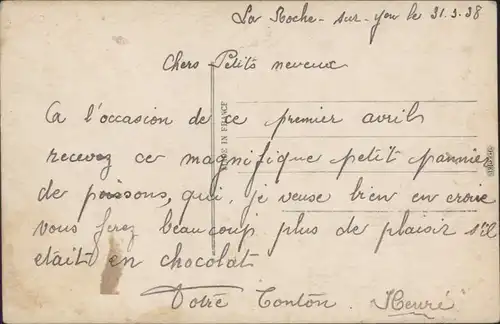 La Roche-sur-yon le 31.3.38
Chers Petits neveux
Ca l'occasion de ce premier avrils
recevez ce magnifique petit pannier
de poissons, qui, je veuse bien en croire
vous ferez beaucoup plus de plaisir s'il
etait en chocolat
Votre Tonton
MADE IN FRANCE